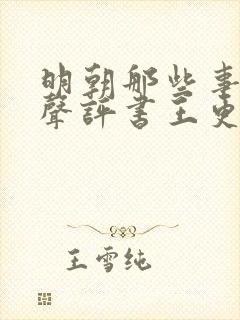 明朝那些事
聲評書王更
王雪纯